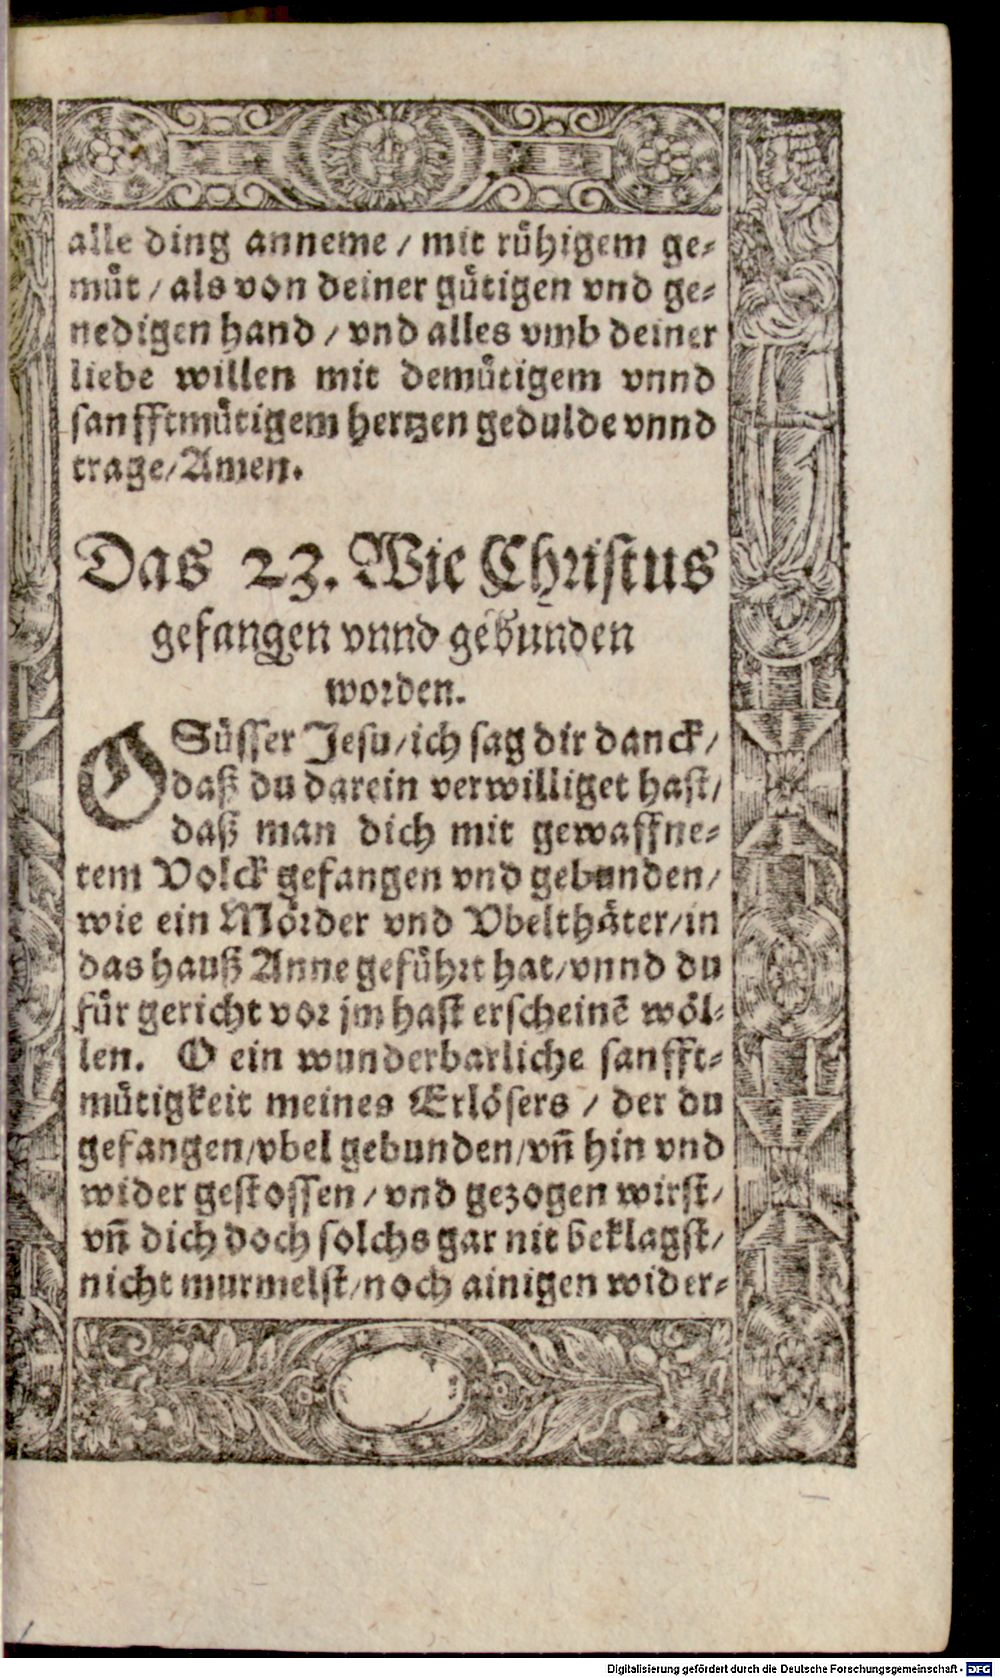 alle ding anneme / mit rühigem ge-
müt / als von deiner gütigen vnd ge-
nedigen hand / vnd alles vmb deiner
liebe willen mit demütigem vnnd
sanfftmütigem hertzen gedulde vnnd
trage / Amen.
Das 23. Wie Christus
gefangen vnnd gebunden
worden.
O Süsser Jesu / ich sag dir danck /
daß du darein verwilliget hast /
daß man dich mit gewaffne-
tem Volck gefangen vnd gebunden /
wie ein Mörder vnd Vbelthäter / in
das hauß Anne geführt hat / vnnd du
für gericht vor jm hast erscheinē wöl-
len. O ein wunderbarliche sanfft-
mütigkeit meines Erlösers / der du
gefangen / vbel gebunden / vñ hin vnd
wider gestossen / vnd gezogen wirst /
vñ dich doch solchs gar nit beklagst /
nicht murmelst / noch ainigen wider-
Digitalisierung gefördert durch die Deutsche Forschungsgemeinschaft - DFG